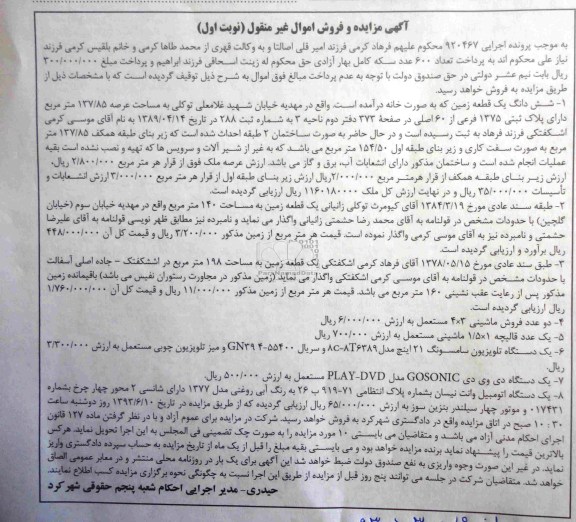 آگهی مزایده و فروش اموال غیر منقول (نوبت اول)
به موجب پرونده اجرایی ۹۲۰۴۶۷ محکوم علیهم فرهاد کرمی فرزند امیر قلی اصالتا و به وکالت قهری از محمد طاها کرمی و خانم بلقیس کرمی فرزند
نیاز علی محکوم اند به پرداخت تعداد ۶۰۰ عدد سکه کامل بهار آزادی حق محکوم له زینت اسحاقی فرزند ابراهیم و پرداخت مبلغ ۳۰۰/۰۰۰/۰۰۰
ریال بابت نیم عشر دولتی در حق صندوق دولت با توجه به عدم پرداخت مبالغ فوق اموال به شرح ذیل توقیف گردیده است که با مشخصات ذیل از
طریق مزایده به فروش خواهد رسید.
۱- شش دانگ یک قطعه زمین که به صورت خانه درآمده است. واقع در مهدیه خیابان شهید غلامعلی توکلی به مساحت عرصه ۱۳۷/۸۵ متر مربع
دارای پلاک ثبتی ۱۳۷۵ فرعی از ۶۰ اصلی در صفحه ۳۷۳ دفتر دوم ناحیه ۳ به شماره ثبت ۲۸۸ در تاریخ ۱۳۸۹/۰۴/۱۴ به نام آقای موسی کرمی
اشکفتکی فرزند فرهاد به ثبت رسیده است و در حال حاضر به صورت ساختمان ۲ طبقه احداث شده است که زیر بنای طبقه همکف ۱۳۷/۸۵ متر
مربع به صورت سفت کاری و زیر بنای طبقه اول ۱۵۴/۵۰ متر مربع می باشد که به غیر از شیر آلات و سرویس ها که تهیه و نصب نشده است بقیه
عملیات انجام شده است و ساختمان مذکور دارای انشعابات آب، برق و گاز می باشد. ارزش عرصه ملک فوق از قرار هر متر مربع ۲/۸۰۰/۰۰۰ ریال.
ارزش زیر بنای طبقه همکف از قرار هرمتر مربع ۲/۰۰۰/۰۰۰ریال ارزش زیر بنای طبقه اول از قرار هر متر مربع ۳/۰۰۰/۰۰۰ ارزش انشعابات و
تأسیسات ۳۵/۰۰۰/۰۰۰ ریال و در نهایت ارزش کل ملک ۱۱۶۰۱۸۰۰۰۰ ریال ارزیابی گردیده است.
۲- طبقه سند عادی مورخ ۱۳۸۴/۳/۱۹ آقای کیومرث توکلی زانیانی یک قطعه زمین به مساحت ۱۴۰ متر مربع واقع در مهدیه خیابان سوم (خیابان
گلچین) با حدودات مشخص در قولنامه به آقای محمد رضا حشمتی زانیانی واگذار می نماید و نامبرده نیز مطابق ظهر نویسی قولنامه به آقای علیرضا
حشمتی و نامبرده نیز به آقای موسی کرمی واگذار نموده است. قیمت هر متر مربع از زمین مذکور ۳/۲۰۰/۰۰۰ ریال و قیمت کل آن ۴۴۸/۰۰۰/۰۰۰
ریال برآورد و ارزیابی گردیده است.
۳- طبق سند عادی مورخ ۱۳۷۸/۰۵/۱۵ آقای فرهاد کرمی اشکفتکی یک قطعه زمین به مساحت ۱۹۸ متر مربع در اشکفتک - جاده اصلی آسفالت
با حدودات مشخص در قولنامه به آقای موسی کرمی اشکفتکی واگذار می نماید (زمین مذکور در مجاورت رستوران نفیس می باشد) باقیمانده زمین
مذکور پس از رعایت عقب نشینی ۱۶۰ متر مربع می باشد. قیمت هر متر مربع از زمین مذکور ۱۱/۰۰۰/۰۰۰ ریال و قیمت کل آن ۱/۷۶۰/۰۰۰/۰۰۰
ریال ارزیابی گردیده است.
۴- دو عدد فروش ماشینی ۳×۴ مستعمل به ارزش ۶/۰۰۰/۰۰۰ ریال
۵- یک عدد قالیچه ۱×۱/۵ ماشینی مستعمل به ارزش ۷۰۰/۰۰۰ ریال
۶- یک دستگاه تلویزیون سامسونگ ۲۱ اینچ مدل ۸C-۸۲۶۳۸۹ و سریال GN۳۹ ۴-۵۵۴۰۰ و میز تلویزیون چوبی مستعمل به ارزش ۳/۳۰۰/۰۰۰
ریال.
۷- یک دستگاه دی وی دی GOSONIC مدل PLAY-DVD مستعمل به ارزش ۵۰۰/۰۰۰ ریال.
۸- یک دستگاه اتومبیل وانت نیسان بشماره پلاک انتظامی ۷۱-۹۱۹ ب ۲۶ به رنگ آبی روغنی مدل ۱۳۷۷ دارای شانسی ۲ محور چهار چرخ بشماره
۰۱۷۴۳۱ و موتور چهار سیلندر بنزین سوز به ارزش ۶۵/۰۰۰/۰۰۰ ریال ارزیابی گردیده که از طریق مزایده در تاریخ ۱۳۹۳/۶/۱۰ روز دوشنبه ساعت
۱۰:۳۰ صبح در اتاق مزایده واقع در دادگستری شهرکرد به فروش خواهد رسید. شرکت در مزایده برای عموم آزاد و با در نظر گرفتن ماده ۱۲۷ قانون
اجرای احکام مدنی آزاد می باشد و متقاضیان می بایستی ۱۰ مورد مزایده را به صورت چک تضمینی فی المجلس به این اجرا تحویل نماید. هرکس
بالاترین قیمت را پیشنهاد نماید برنده مزایده خواهد بود و می بایستی بقیه مبلغ را قبل از یک ماه از تاریخ مزایده به حساب سپرده دادگستری واریز
نماید، در غیر این صورت وجوه واریزی به نفع صندوق دولت ضبط خواهد شد این آگهی برای یک بار در روزنامه محلی منتشر و در معابر عمومی الصاق
خواهد شد. متقاضیان شرکت در جلسه می توانند پنج روز قبل از مزایده از طریق این اجرا نسبت به چگونگی نحوه برگزاری مزایده کسب اطلاع نمایند.
حیدری- مدیر اجرایی احکام شعبه پنجم حقوقی شهرکرد